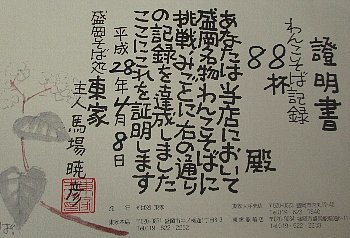 證明書
わんこそば記録
88杯
殿
あなたは当店において
盛岡名物わんこそばに
挑戦みごとに右の通り
の記録を達成しました
ここにこれを証明します
平成28年4月8日
盛岡そば処 東家
主人 馬場暁彦